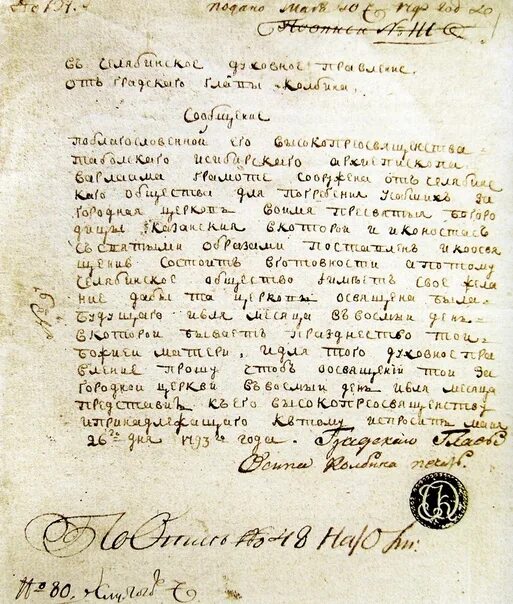 подано Маія 20
По описи № 111
Въ Селябинское духовное правление
отъ градского главы Колбина
Сообщение
поблагословенной его высокопреосвященства
табольского исибирского архиепископа
варлаима грамоте сооружена отъ селябинс
каго общества для погребения усобшихъ За
городная церковь воимя пресвятыя богоро
дицы казанския вкоторой и иконостасъ
съсвятыми образами поставленъ икоосвя
щению состоитъ вготовности апотому
селябинское общество имѣетъ свое жела
ние дабы та церковь освящена была
будущаго июля месяца въвосмый день
вкоторой бываетъ празднество той
божией матери, идля того духовное пра
вление прошу чтобъ обосвящении той За
городной церкви въвосмый день июля месяца
представить къего высокопреосвященству
ипринадлежащаго кътому испроситъ маия
26го дня 1793го года. Градскаго Главы
Осипа Колбина печать.
По Описи № 48 На 10 лн:
№ 80.